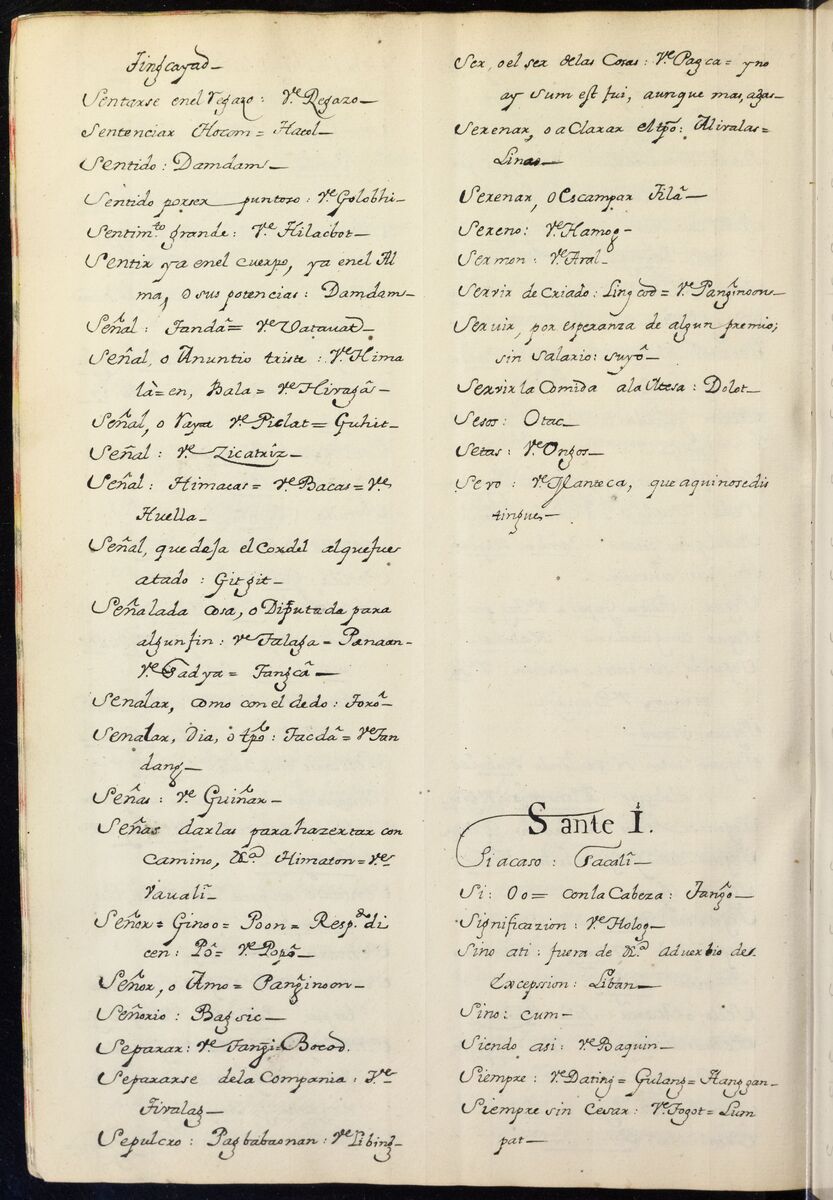 Tingcayad_
Sentarse enel Regazo: Vᵉ Regazo_
Sentenciar Hocom= Hatol_
Sentido: Damdam_
Sentido porser puntoso: Vᵉ Golobhi_
Sentimᵗᵒ grande: Vᵉ Hilacbot_
Sentir ya enel cuerpo, ya enel Al
ma, o sus potencias: Damdam_
Señal: Tandã= Vᵉ Vatavad_
Señal, o Anuntio triste: Vᵉ Hima
là=en, Bala= Vᵉ Hiragãs_
Señal, o Raya Vᵉ Piclat= Guhit_
Señal: Vᵉ Zicatriz_
Señal: Himacas= Vᵉ Bacas= Vᵉ
Huella_
Señal, que deja el Cordel alquefue
atado: Gitgit_
Señalada cosa, o Diputada para
algun fin: Vᵉ Talaga= Panaan_
Vᵉ Tadya= Tangcã_
Senalar, como con el dedo: Torõ_
Senalar, Dia, o tpõ: Tacdã= Vᵉ Tan
dang_
Señas: Vᵉ Guiñar_
Señas darlas para hazertar con
Camino, &ᵃ Himaton= Vᵉ
Vavali_
Señor= Ginoo= Poon= Respᵈᵒ di
cen: Põ= Vᵉ Popõ_
Señor, o Amo= Panginoon_
Señorio: Bagsic_
Separar: Vᵉ Tangi= Bocod.
Separarse dela Compania: Vᵉ
Tivalag_
Sepulcro: Pagbabaonan: Vᵉ Libing_
Ser, o el ser delas Cosas: Vᵉ Pagca= yno
ay sum est fui, aunque mas, agas_
Serenar, o a Clarar el tpõ: Alivalas=
Linao_
Serenar, o Escampar Tilã_
Sereno: Vᵉ Hamog_
Sermon: Vᵉ Aral_
Servir de Criado: Lingcod= Vᵉ Panginoon_
Servir, por esperanza de algun premio;
sin salario: suyõ_
Servir la Comida ala Mesa: Dolot_
Sesos: Otac_
Setas: Vᵉ Ongos_
Sevo: Vᵉ Manteca, que aqui nosedis
tingue_
S ante I.
Si acaso: Sacali_
Si: Oo= con la Cabeza: Tangõ_
Significazion: Vᵉ Holog_
Sino ati: fuera de &ᵃ adverbio de
Excepsion: Liban_
Sino: cum_
Siendo asi: Vᵉ Baquin_
Siempre: Vᵉ Dating= Gulang= Hanggan_
Siempre sin Cesar: Vᵉ Togot= Lum
pat_